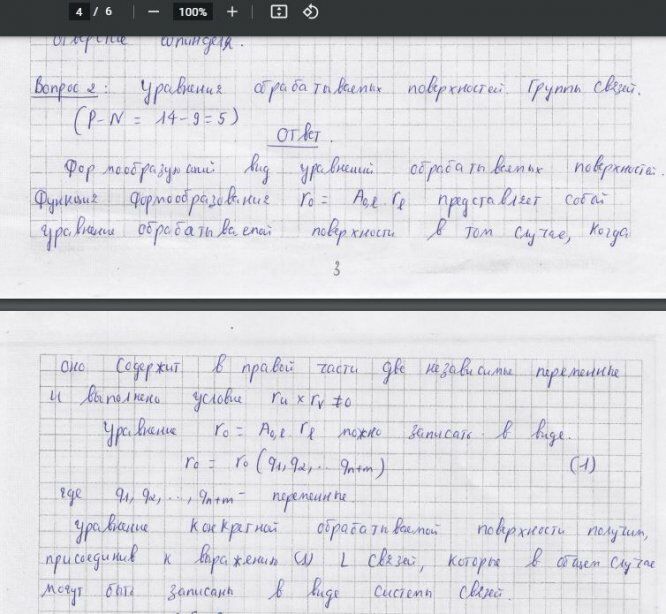 4 / 6 100%
отверстие шпинделя.
Вопрос 2: Уравнения обрабатываемых поверхностей. Группы связей.
(P-N = 14-9=5)
Ответ.
Формообразующий вид уравнений обрабатываемых поверхностей.
Функция формообразования r₀ = A₀,ℓ rℓ представляет собой
уравнение обрабатываемой поверхности в том случае, когда
3
оно содержит в правой части две независимые переменные
и выполнено условие rᵤ × rᵥ ≠0
Уравнение r₀ = A₀,ℓ rℓ можно записать в виде.
r₀ = r₀ (q₁, q₂, ... qₙ₊ₘ) (1)
где q₁, q₂, ..., qₙ₊ₘ - переменные.
Уравнение конкретной обрабатываемой поверхности получим,
присоединив к выражению (1) L связей, которые в общем случае
могут быть записаны в виде системы связей.